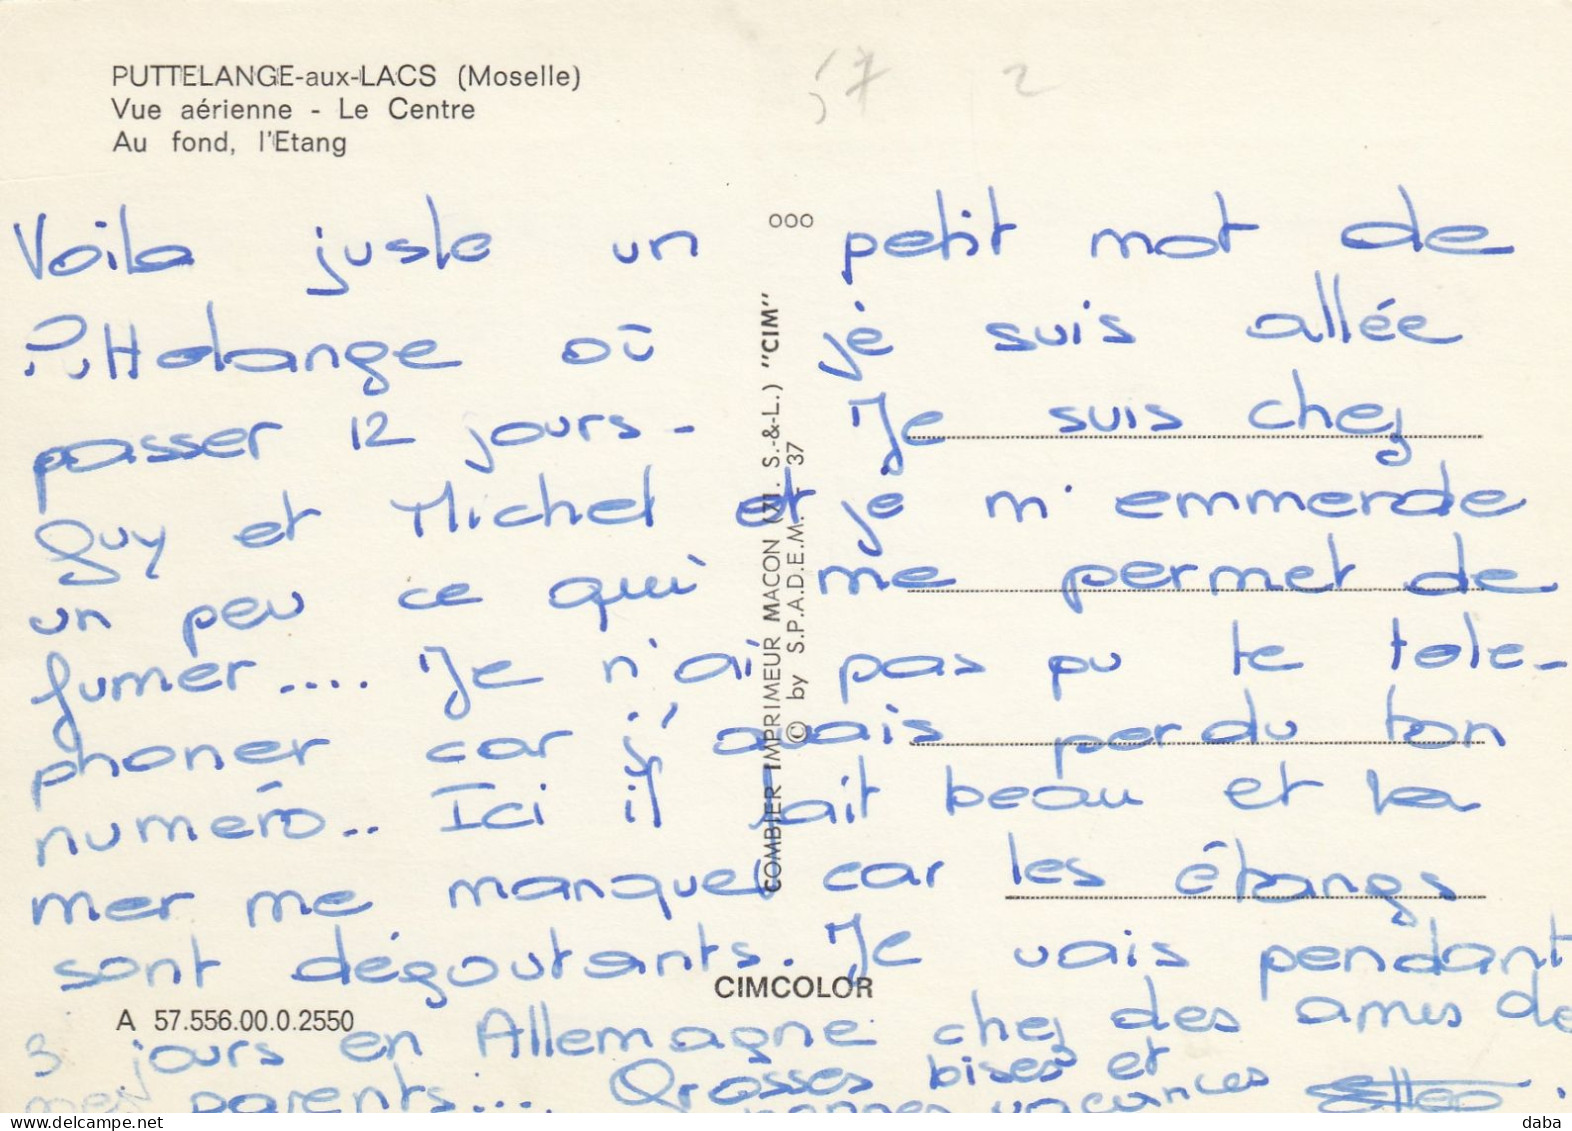 PUTTELANGE-aux-LACS (Moselle)
Vue aérienne - Le Centre
Au fond, l'Etang
57 2
Voila juste un petit mot de
Puttelange où je suis allée
passer 12 jours - Je suis chez
Guy et Michel et je m'emmerde
un peu ce qui me permet de
fumer.... Je n'ai pas pu te tele-
phoner car j'avais perdu ton
numero.. Ici il fait beau et la
mer me manque car les étangs
sont dégoutants. Je vais pendant
3 jours en Allemagne chez des amis de
mes parents.... Grosses bises et
bonnes vacances
ooo
COMBIER IMPRIMEUR MACON (71. S.-&-L.) "CIM"
© by S.P.A.D.E.M. - 37
CIMCOLOR
A 57.556.00.0.2550
delcampe.net
daba